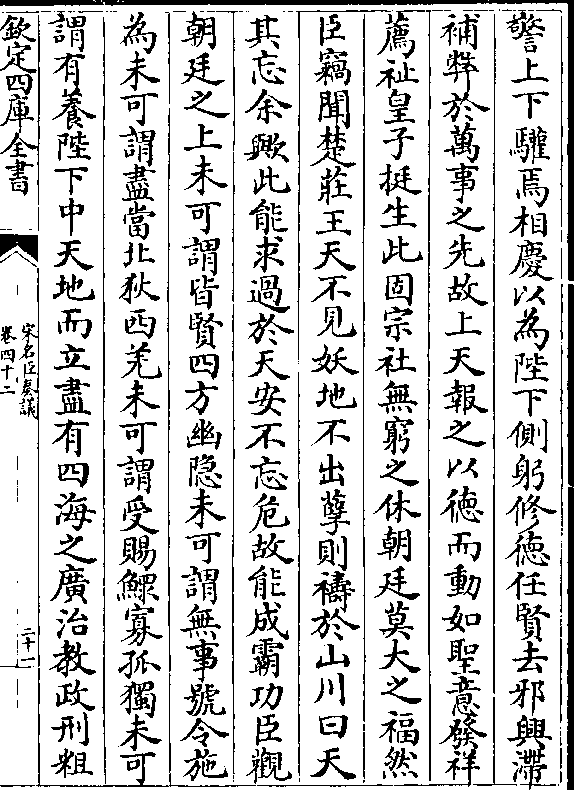 警上下驩焉相慶以為陛下側躬修德任賢去邪興滯
補弊於萬事之先故上天報之以德而動如聖意發祥
薦祉皇子挺生此固宗社無窮之休朝廷莫大之福然
臣竊聞楚莊王天不見妖地不出孽則禱於山川曰天
其忘余歟此能求過於天安不忘危故能成霸功臣觀
朝廷之上未可謂皆賢四方幽隐未可謂無事號令施
為未可謂盡當北狄西羌未可謂受賜鰥寡孤獨未可
謂有養陛下中天地而立盡有四海之廣治教政刑粗
欽定四庫全書
宋名臣奏議
卷四十二
二十一